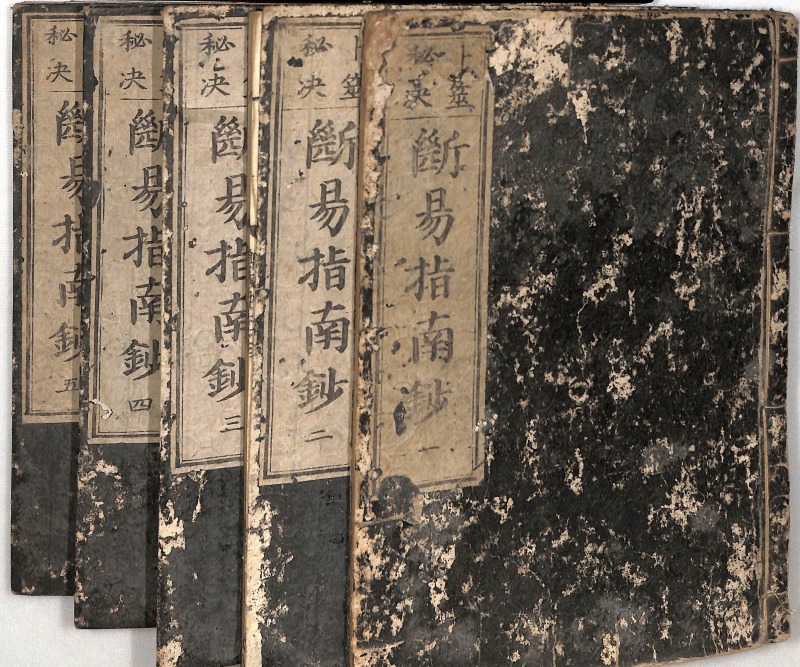 卜筮
秘决
斷易指南鈔 一
卜筮
秘决
斷易指南鈔 二
秘决
斷易指南鈔 三
秘决
斷易指南鈔 四
秘决
斷易指南鈔 五